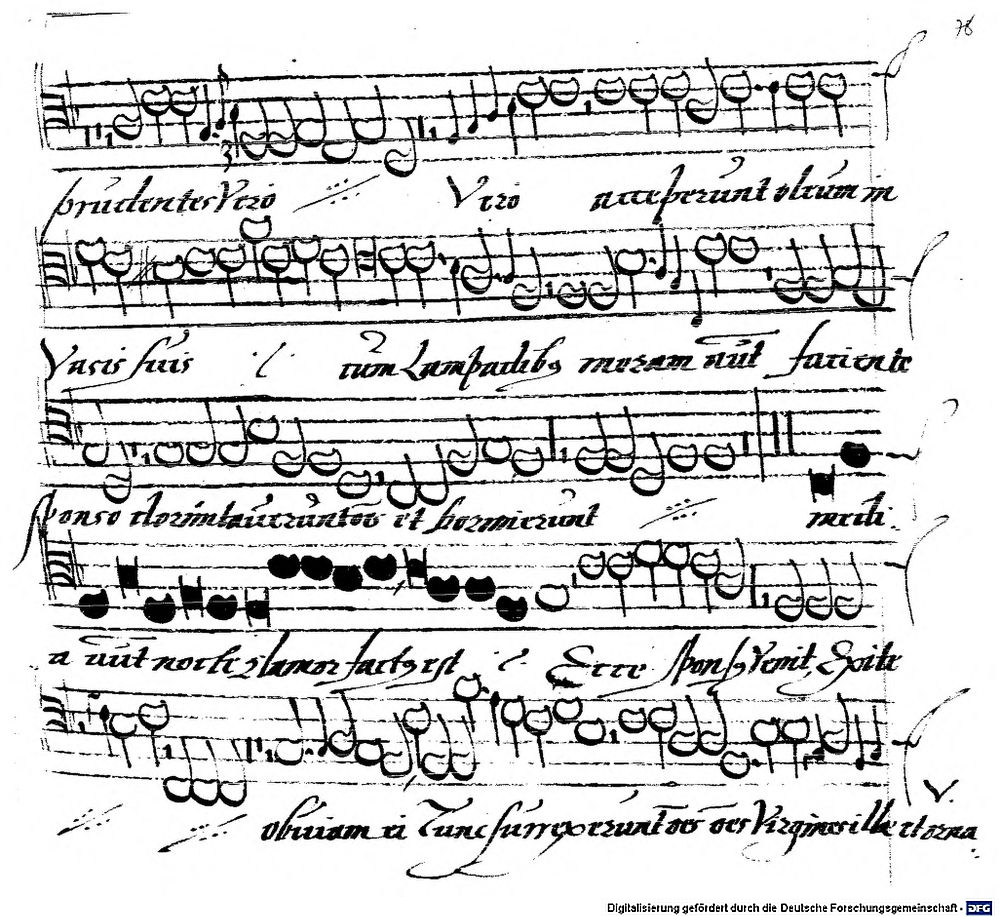 78
prudentes Vero Vero acceperunt oleum in
Vasis suis cum Lampadibꝰ moram aūt faciente
sponso dormitaverunt oēs et dormierunt medi
a aūt nocte clamor factꝰ est Ecce sponsꝰ Venit, Exite
obviam ei Tunc surrexerunt oēs oēs Virgines ille et orna
V.
Digitalisierung gefördert durch die Deutsche Forschungsgemeinschaft - DFG